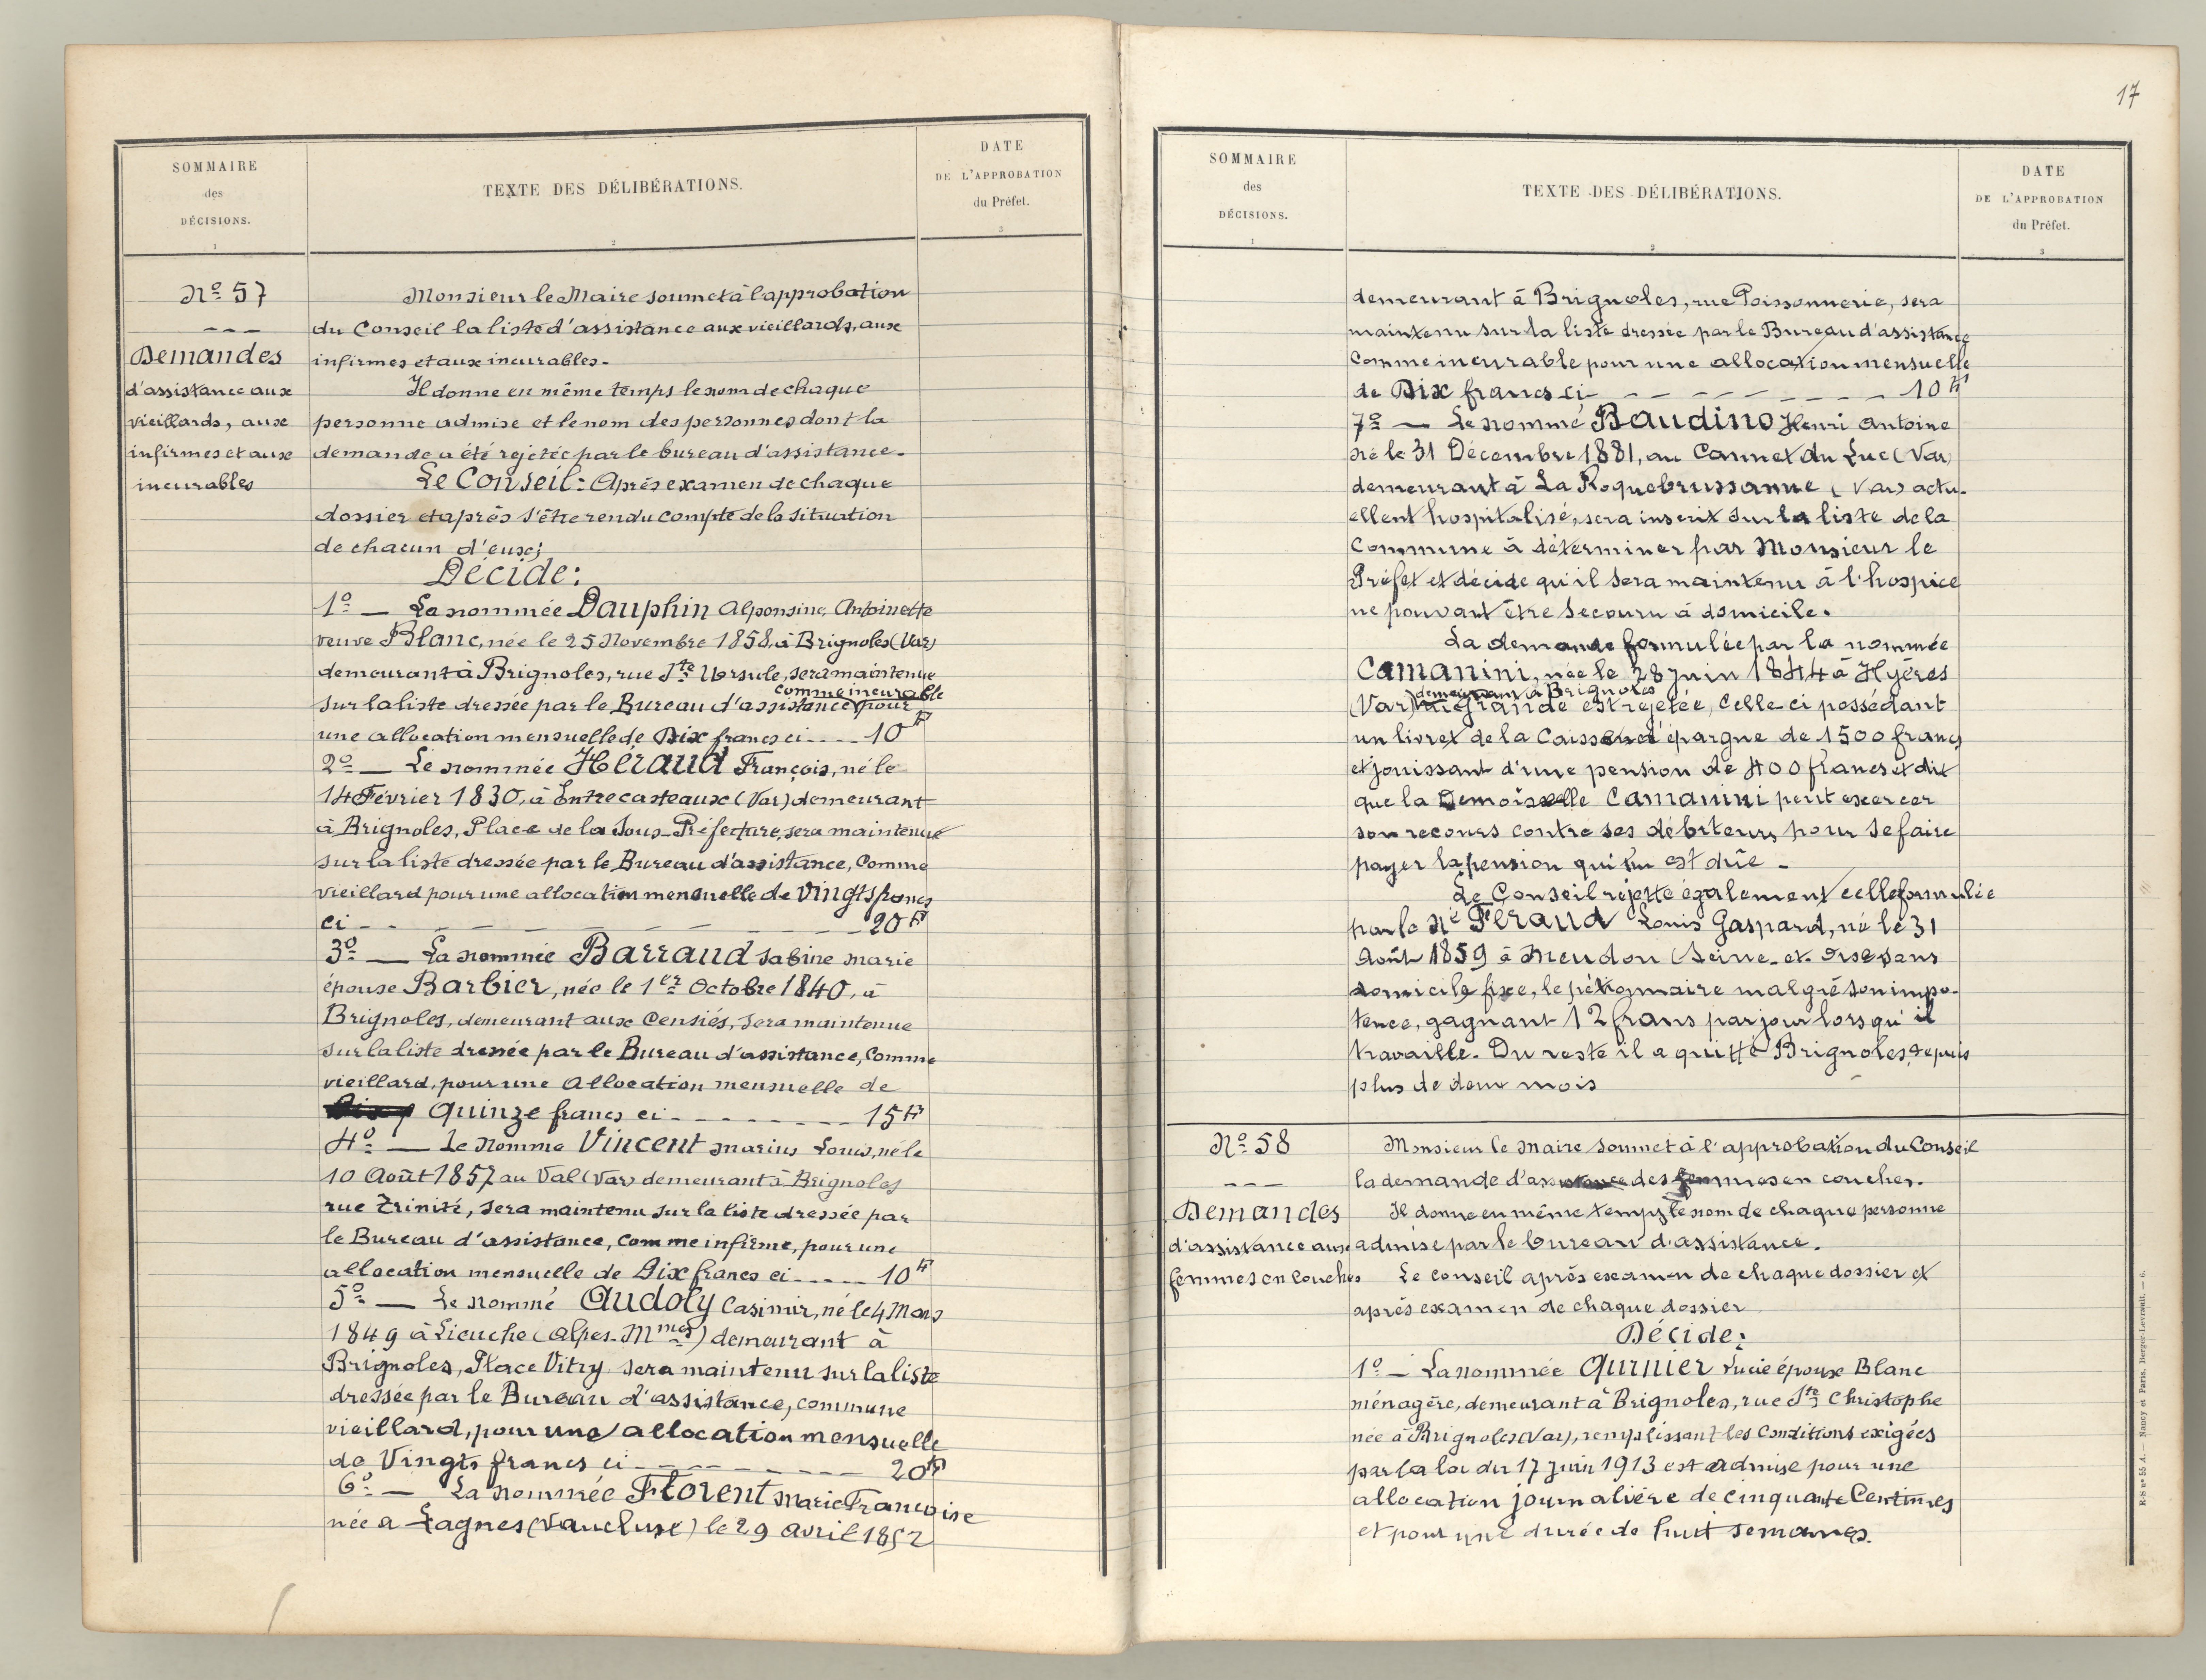 SOMMAIRE
des
DÉCISIONS.
1
TEXTE DES DÉLIBÉRATIONS.
2
DATE
DE L'APPROBATION
du Préfet.
3
Nº 57
---
Demandes
d'assistance aux
vieillards, aux
infirmes et aux
incurables
Monsieur le Maire soumet à l'approbation
du Conseil la liste d'assistance aux vieillards, aux
infirmes et aux incurables.
Il donne en même temps le nom de chaque
personne admise et le nom des personnes dont la
demande a été rejetée par le bureau d'assistance.
Le Conseil: Après examen de chaque
dossier et après s'être rendu compte de la situation
de chacun d'eux;
Décide:
1º — La nommée Dauphin Alponsine, Antoinette
veuve Blanc, née le 25 Novembre 1858, à Brignoles (Var)
demeurant à Brignoles, rue Ste Ursule, sera maintenue
comme incurable
sur la liste dressée par le Bureau d'assistance pour
une allocation mensuelle de Dix francs ci ---- 10 fr
2º — Le nommée Héraud François, né le
14 Février 1830, à Entrecasteaux (Var) demeurant
à Brignoles, Place de la Sous-Préfecture, sera maintenue
sur la liste dressée par le Bureau d'assistance, Comme
vieillard pour une allocation mensuelle de Vingts francs
ci -- -------- 20 fr
3º — La nommée Barraud Sabine Marie
épouse Barbier, née le 1er Octobre 1840, à
Brignoles, demeurant aux Censiés, sera maintenue
sur la liste dressée par le Bureau d'assistance, Comme
vieillard, pour une Allocation mensuelle de
Quinze francs ci --------- 15 fr
4º — Le Nomme Vincent Marius Louis, né le
10 Août 1857 au Val (Var) demeurant à Brignoles
rue Trinité, sera maintenu sur la liste dressée par
le Bureau d'assistance, comme infirme, pour une
allocation mensuelle de Dix francs ci ----- 10 fr
5º — Le nommé Audoly Casimir, né le 4 Mars
1849 à Lieuche (Alpes-Mmes) demeurant à
Brignoles, Place Vitry sera maintenu sur la liste
dressée par le Bureau d'assistance, commune
vieillard, pour une allocation mensuelle
de Vingts francs ci --------- 20 fr
6º — La nommée Florent Marie Françoise
née a Lagnes (Vaucluse) le 29 Avril 1852
17
SOMMAIRE
des
DÉCISIONS.
1
TEXTE DES DÉLIBÉRATIONS.
2
DATE
DE L'APPROBATION
du Préfet.
3
demeurant à Brignoles, rue Poissonnerie, sera
maintenu sur la liste dressée par le Bureau d'assistance
Comme incurable pour une allocation mensuelle
de Dix francs ci --------- 10 fr
7º — Le nommé Baudino Henri Antoine
né le 31 Décembre 1881, au Cannet du Luc (Var)
demeurant à La Roquebrussanne (Var) actu-
ellent hospitalisé, sera inscrit sur la liste de la
Commune à déterminer par Monsieur le
Préfet et décide qu'il sera maintenu à l'hospice
ne pouvant être secouru à domicile.
La demande formulée par la nommée
Camanini, née le 28 Juin 1844 à Hyères
demeurant à Brignoles
(Var) est rejetée, Celle ci possédant
un livret de la Caisse d'épargne de 1500 francs
et jouissant d'une pension de 400 francs et dit
que la Demoiselle Camanini peut exercer
son recours contre ses débiteurs pour se faire
payer la pension qui lui est dûe -
Le Conseil rejette également celle formulée
par le Né Féraud Louis Gaspard, né le 31
Août 1859 à Meudon (Seine-et-Oise) sans
domicile fixe, le pétionnaire malgré son impo-
tence, gagnant 12 frans par jour lorsqu'il
travaille. Du reste il a quitté Brignoles depuis
plus de deux mois
Nº 58
---
Demandes
d'assistance aux
femmes en couches
Monsieur le Maire soumet à l'approbation du Conseil
la demande d'assistance des femmes en couches.
Il donne en même temps le nom de chaque personne
admise par le bureau d'assistance.
Le conseil après examen de chaque dossier et
après examen de chaque dossier
Décide:
1º — La nommée Lucie épouse Blanc
ménagère, demeurant à Brignoles, rue Ste Christophe
née à Brignoles (Var), remplissant les Conditions exigées
par la loi du 17 Juin 1913 est admise pour une
allocation journalière de cinquante Centimes
et pour une durée de huit semaines.
R-S nº 55 A. — Nancy et Paris, Berger-Levrault. — 6.